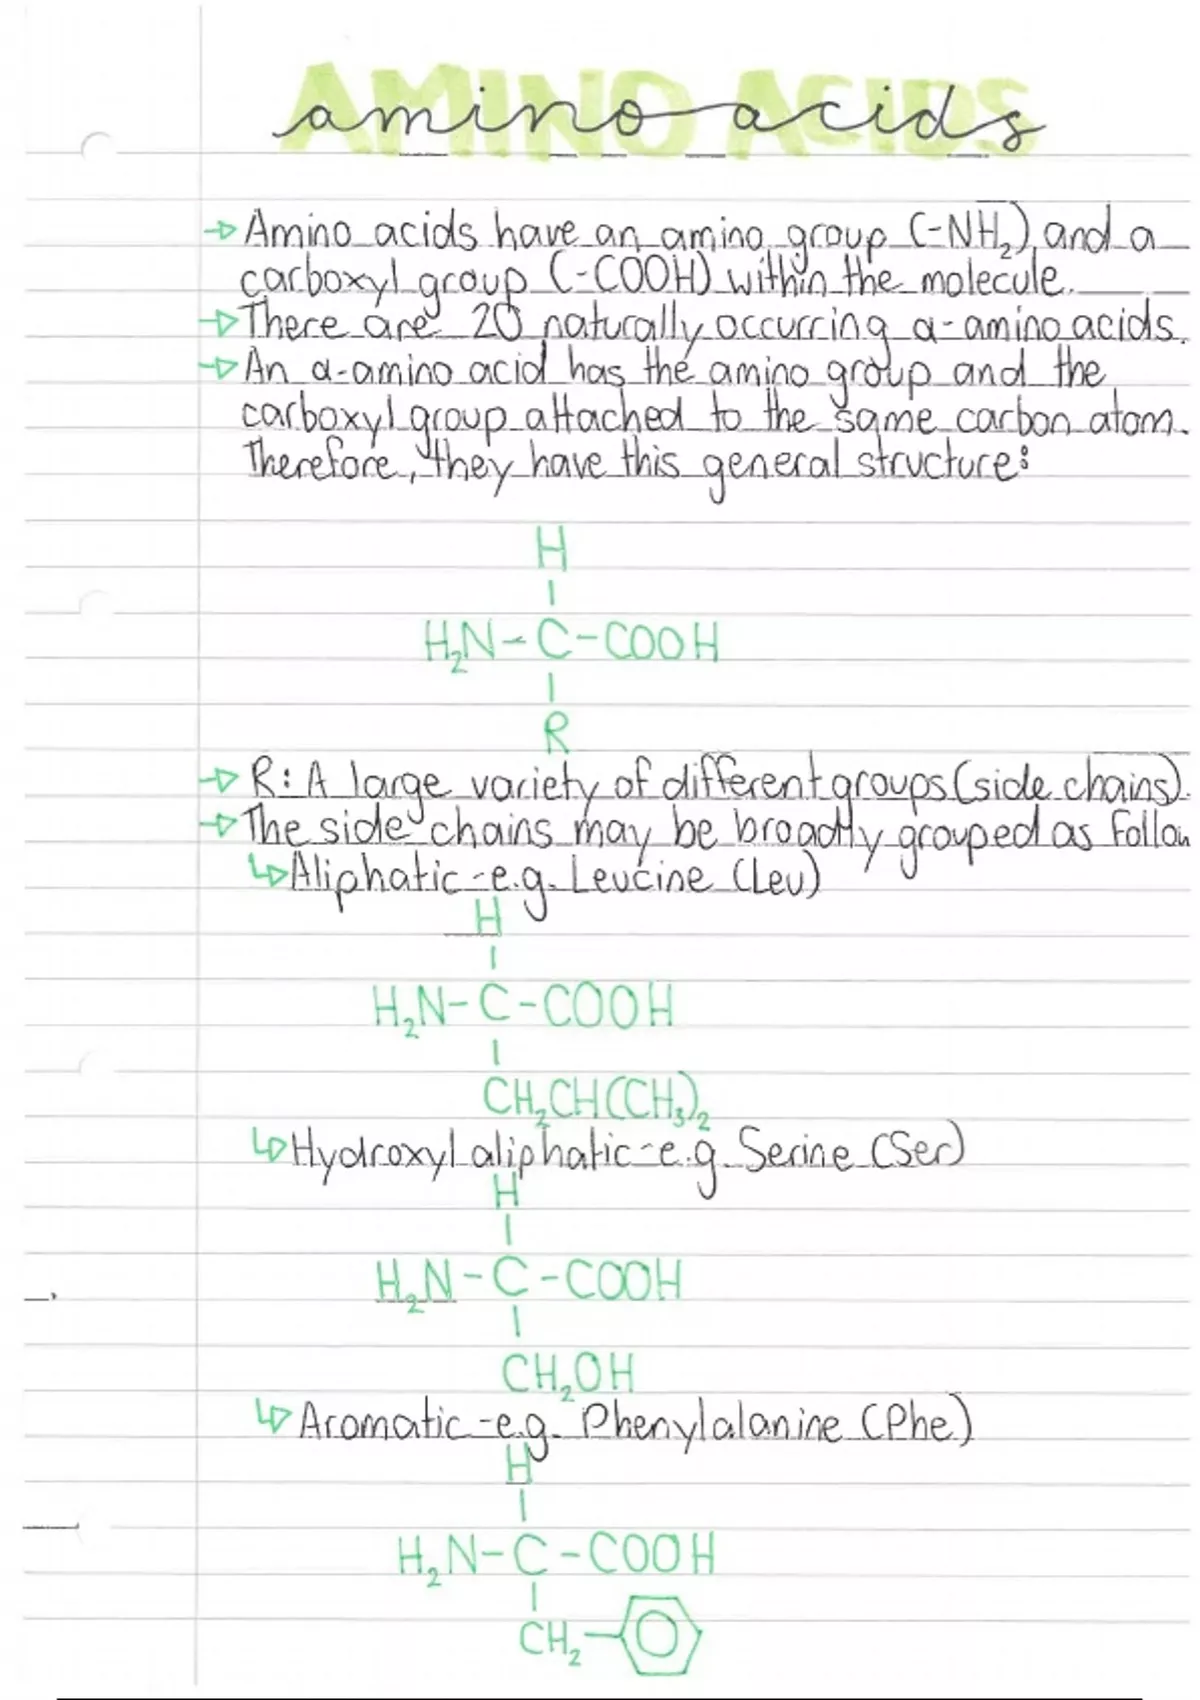 AMINO ACIDS
amino acids
→ Amino acids have an amino group (-NH₂) and a
carboxyl group (-COOH) within the molecule.
→ There are 20 naturally occurring α-amino acids.
→ An α-amino acid has the amino group and the
carboxyl group attached to the same carbon atom.
Therefore, they have this general structure:
H
|
H₂N-C-COOH
|
R
→ R: A large variety of different groups (side chains).
→ The side chains may be broadly grouped as follow
↳ Aliphatic - e.g. Leucine (Leu)
H
|
H₂N-C-COOH
|
CH₂CH(CH₃)₂
↳ Hydroxyl aliphatic - e.g. Serine (Ser)
H
|
H₂N-C-COOH
|
CH₂OH
↳ Aromatic - e.g. Phenylalanine (Phe)
H
|
H₂N-C-COOH
|
CH₂-